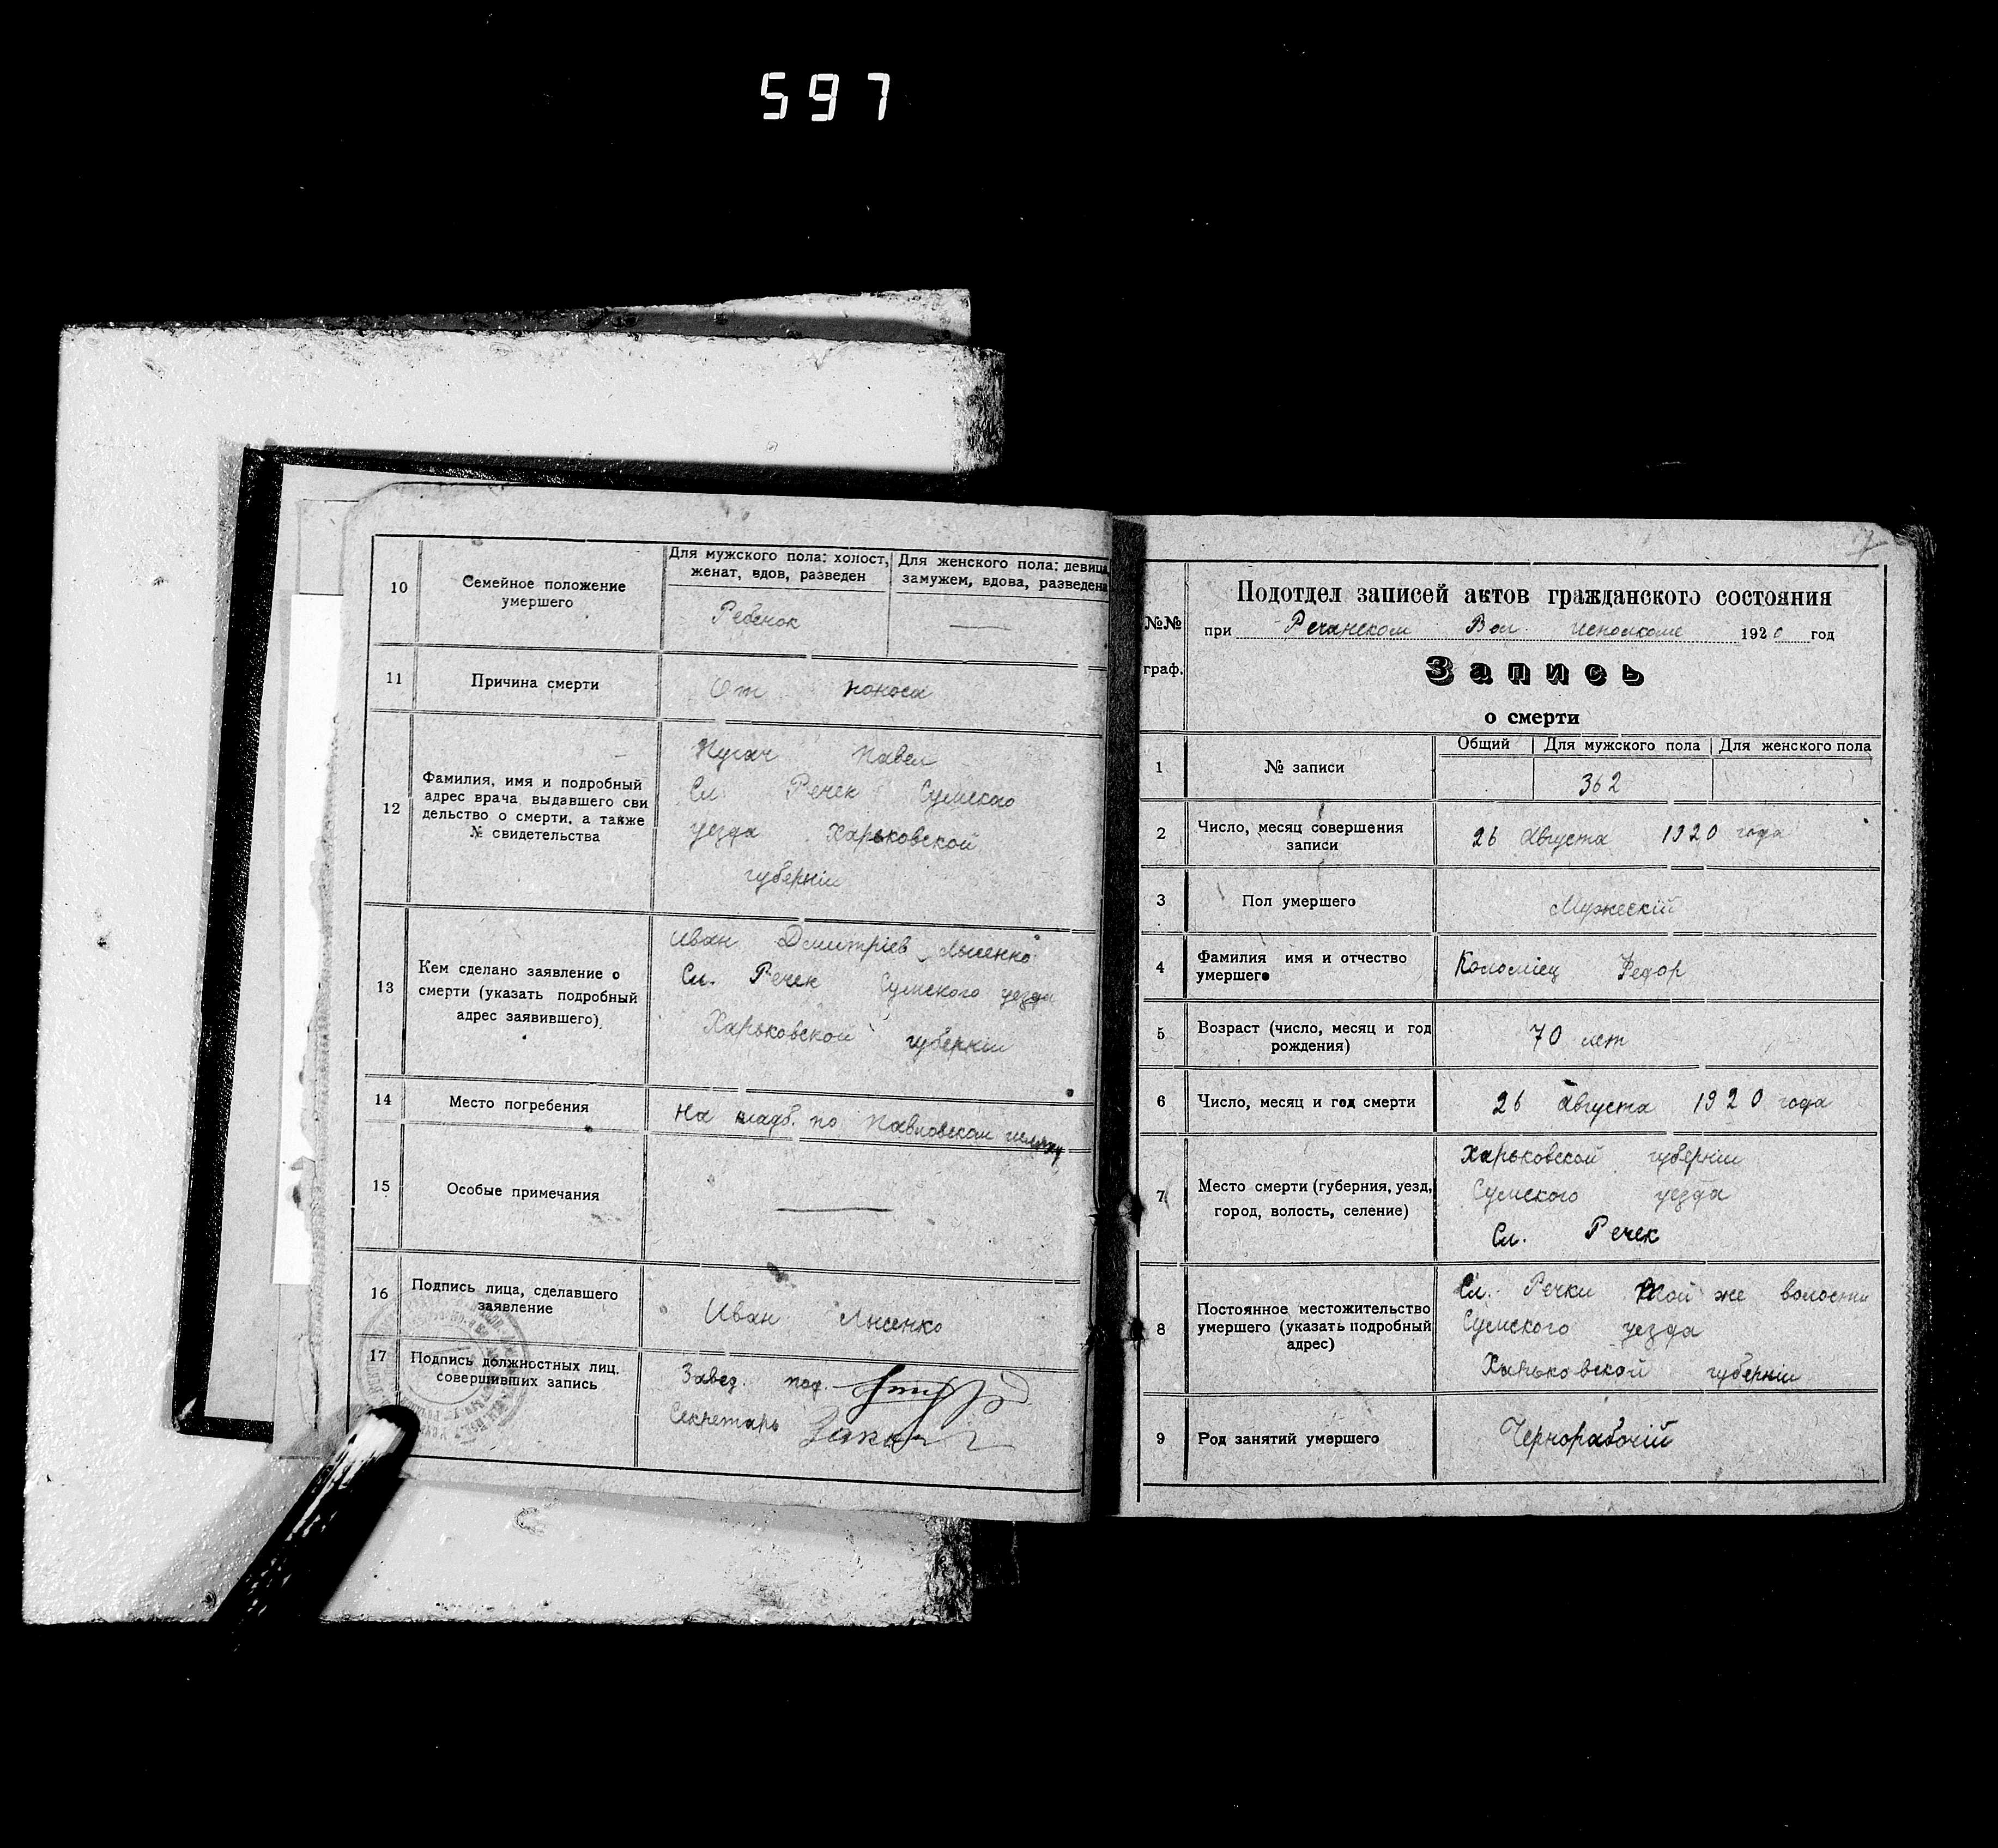 597
10
Семейное положение
умершего
Для мужского пола: холост,
женат, вдов, разведен
Для женского пола: девица,
замужем, вдова, разведена
Ребенок
11
Причина смерти
От поноса
12
Фамилия, имя и подробный
адрес врача, выдавшего сви
дельство о смерти, а также
№ свидетельства
Пугач Павел
Сл. Речек Сумскаго
уезда Харьковской
губернии
13
Кем сделано заявление о
смерти (указать подробный
адрес заявившего)
Иван Дмитріев Лысенко
Сл. Речек Сумского уезда
Харьковской губерніи
14
Место погребения
На кладб. по Павловском шляху
15
Особые примечания
16
Подпись лица, сделавшего
заявление
Иван Лысенко
17
Подпись должностных лиц.
совершивших запись
Завед. под.
Секретарь
№№
граф.
Подотдел записей актов гражданского состояния
при Речанском Вол исполкоме 1920 год
Запись
о смерти
1
№ записи
Общий
Для мужского пола
Для женского пола
362
2
Число, месяц совершения
записи
26 августа 1920 года
3
Пол умершего
Мужескій
4
Фамилия имя и отчество
умершего
Коломіец Федор
5
Возраст (число, месяц и год
рождения)
70 лет
6
Число, месяц и год смерти
26 августа 1920 года
7
Место смерти (губерния, уезд,
город, волость, селение)
Харьковской губерніи
Сумского уезда
Сл. Речек
8
Постоянное местожительство
умершего (указать подробный
адрес)
Сл. Речки той же волости
Сумского уезда
Харьковской губерніи
9
Род занятий умершего
Чернорабочій